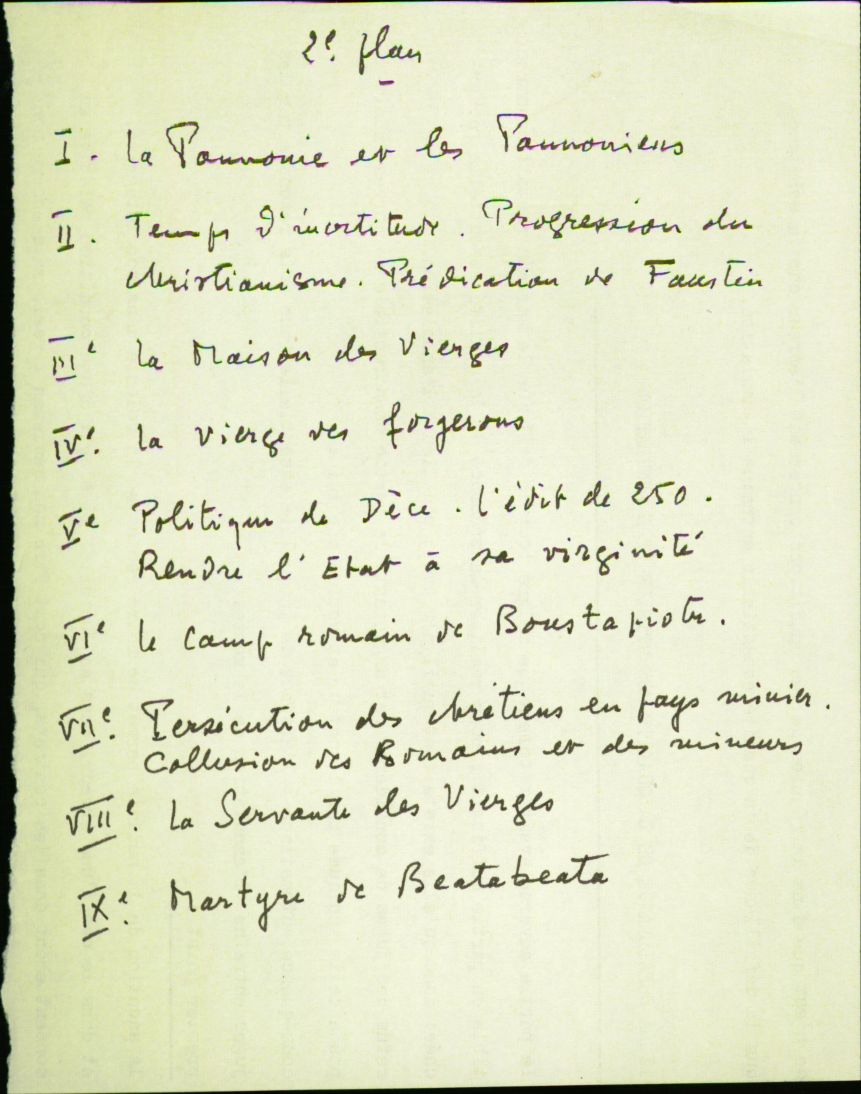 2e. plan
I. La Pannonie et les Pannoniens
II. Temps d'incertitude. Progression du
christianisme. Prédication de Faustin
IIIe La Maison des Vierges
IVe. La Vierge des forgerons
Ve Politique de Dèce. L'édit de 250.
Rendre l'Etat à sa virginité
VIe Le Camp romain de
VIIe. Persécution des chrétiens en pays minier.
Collusion des Romains et des mineurs
VIIIe. La Servante des Vierges
IXe. Martyre de Beatabeata